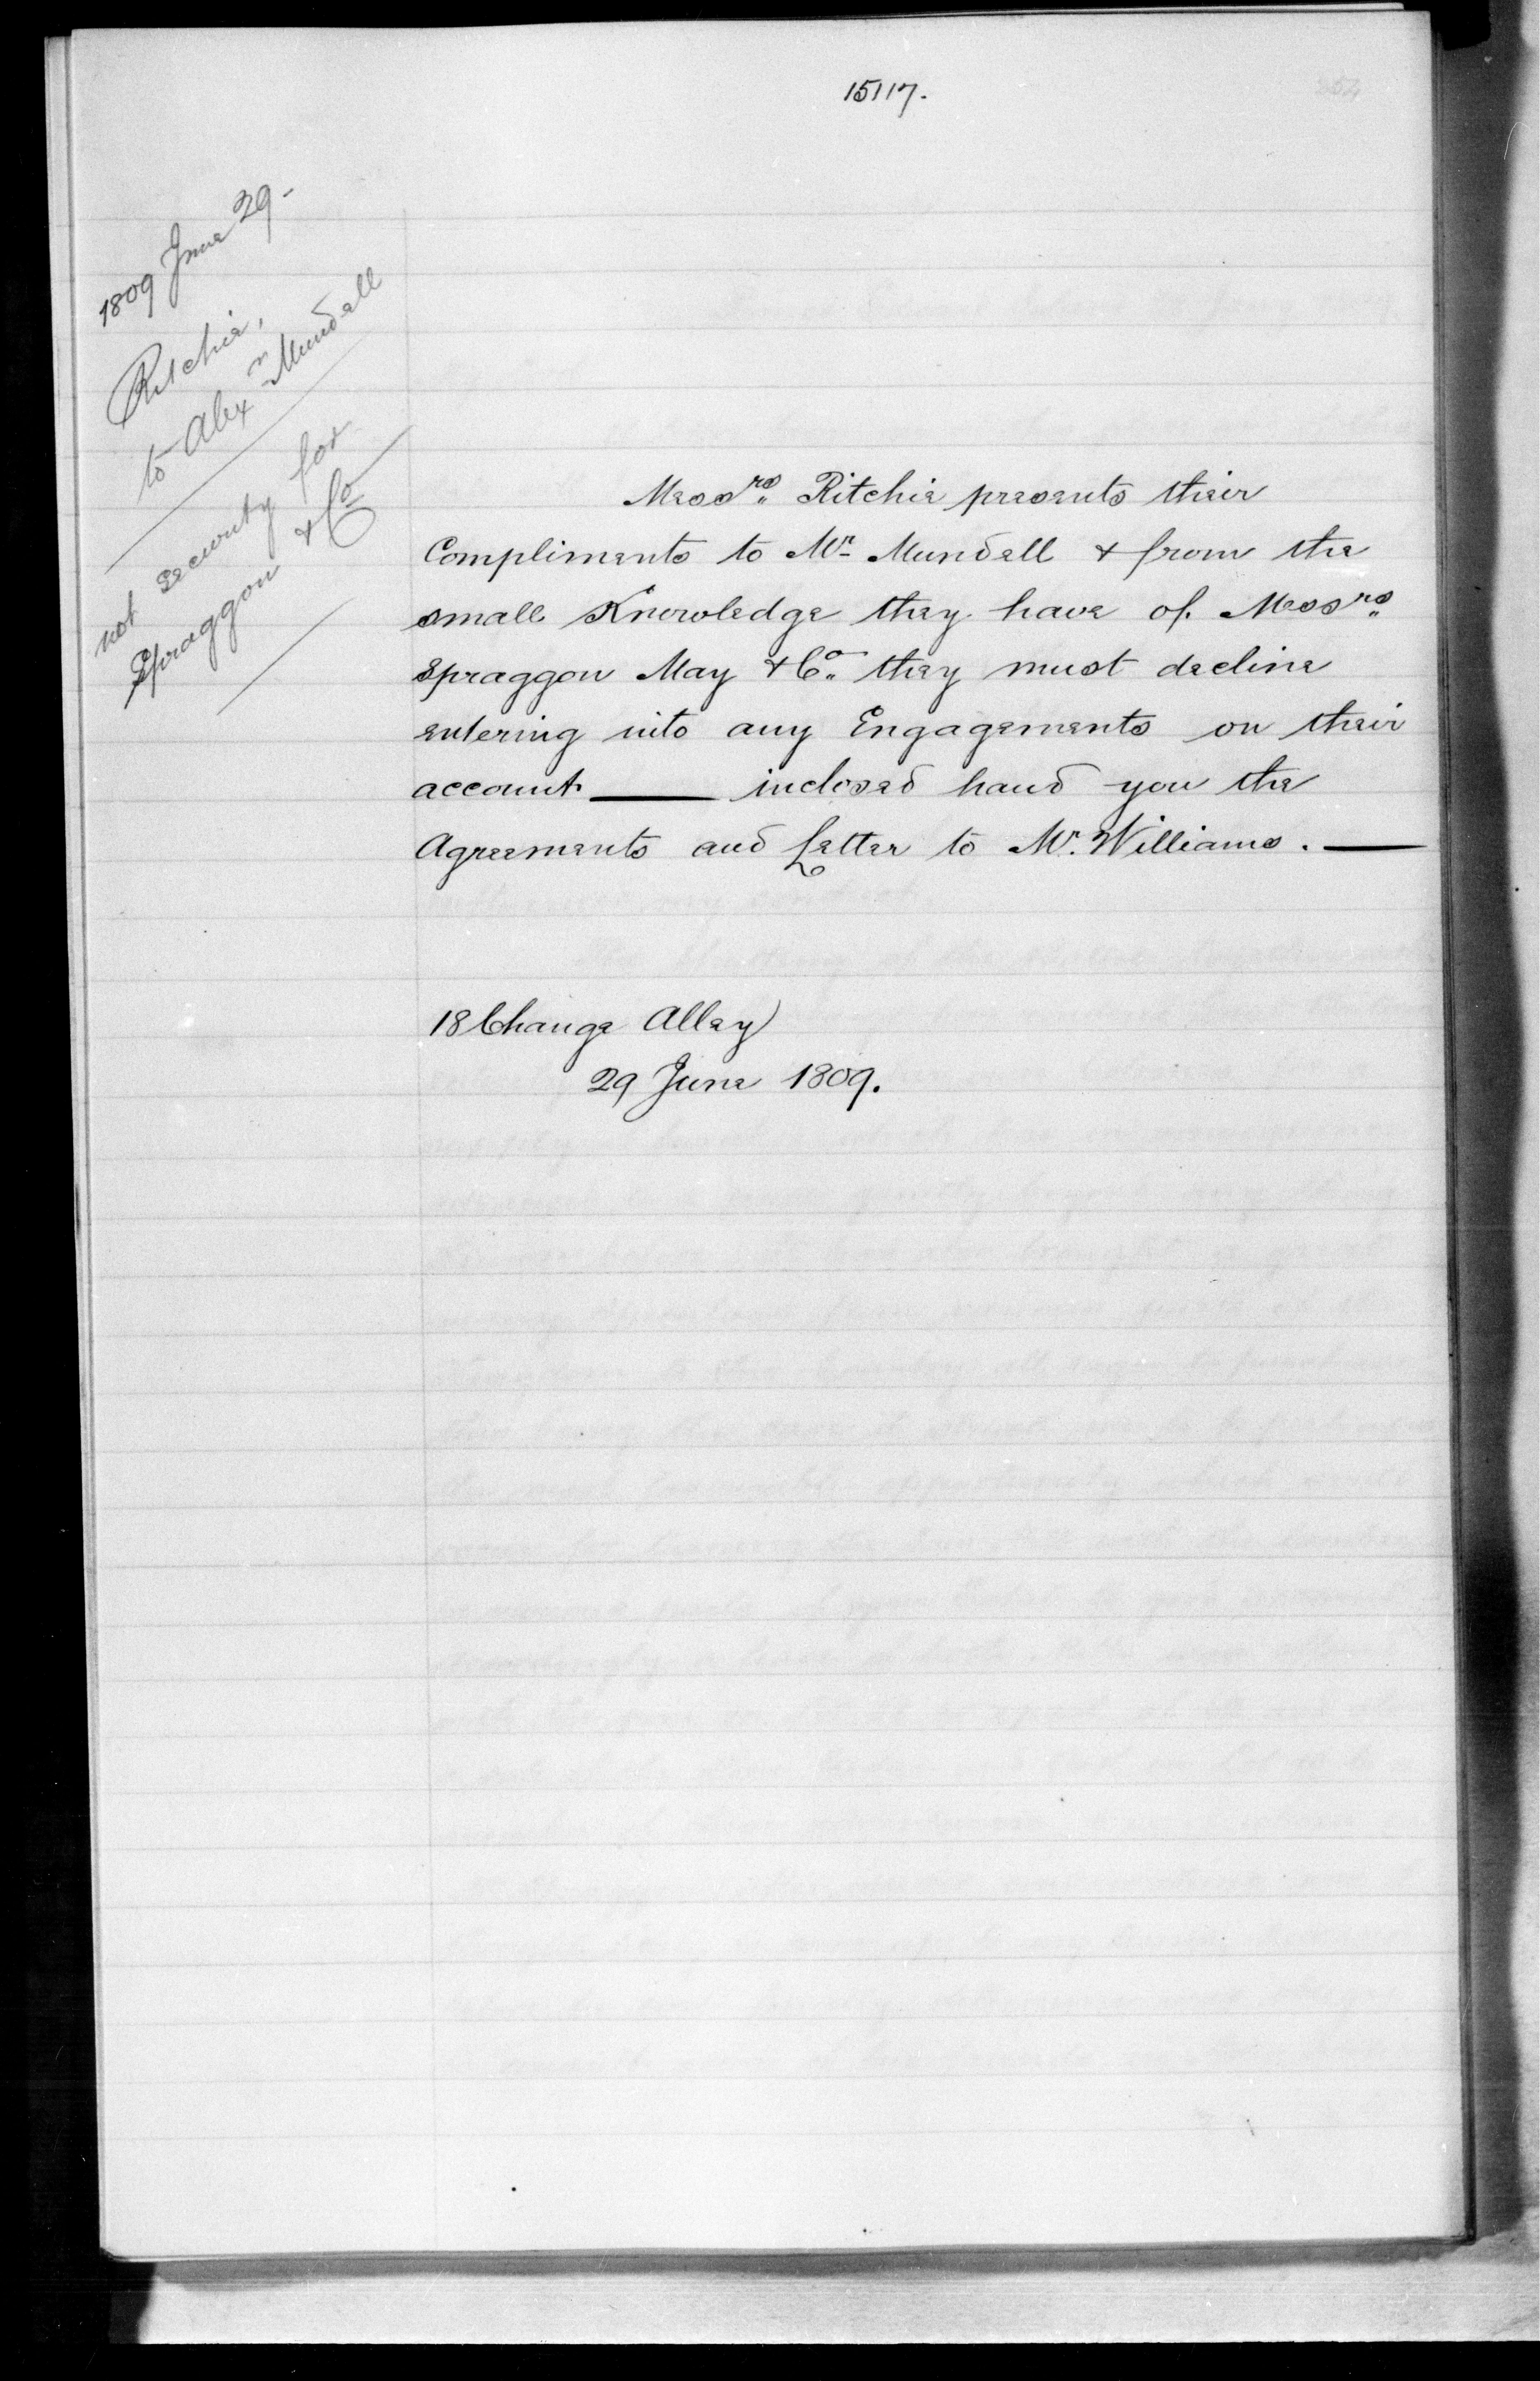 15117.
1809 June 29.
Ritchie,
to Alexr Mundell
not security for
Spraggon & Co
Messrs. Ritchie presents their
Compliments to Mr Mundell & from the
small Knowledge they have of Messrs.
Spraggon May & Co. they must decline
entering into any Engagements on their
account — inclosed hand you the
Agreements and Letter to Mr. Williams. —
18 Change Alley
29 June 1809.